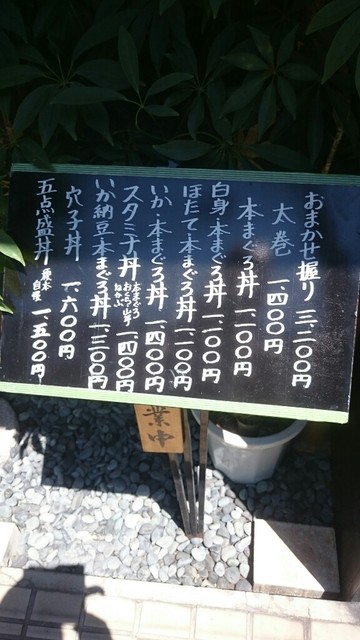 おまかせ握り 三、二〇〇円
太巻 一、四〇〇円
本まぐろ丼 一、二〇〇円
白身・本まぐろ丼 一、一〇〇円
ほたて・本まぐろ丼 一、一〇〇円
いか・本まぐろ丼 一、四〇〇円
スタミナ丼 本まぐろ おくら 山芋 一、四〇〇円
いか納豆本まぐろ丼 一、三〇〇円
穴子丼 一、六〇〇円
五点盛丼 一、五〇〇円
業中